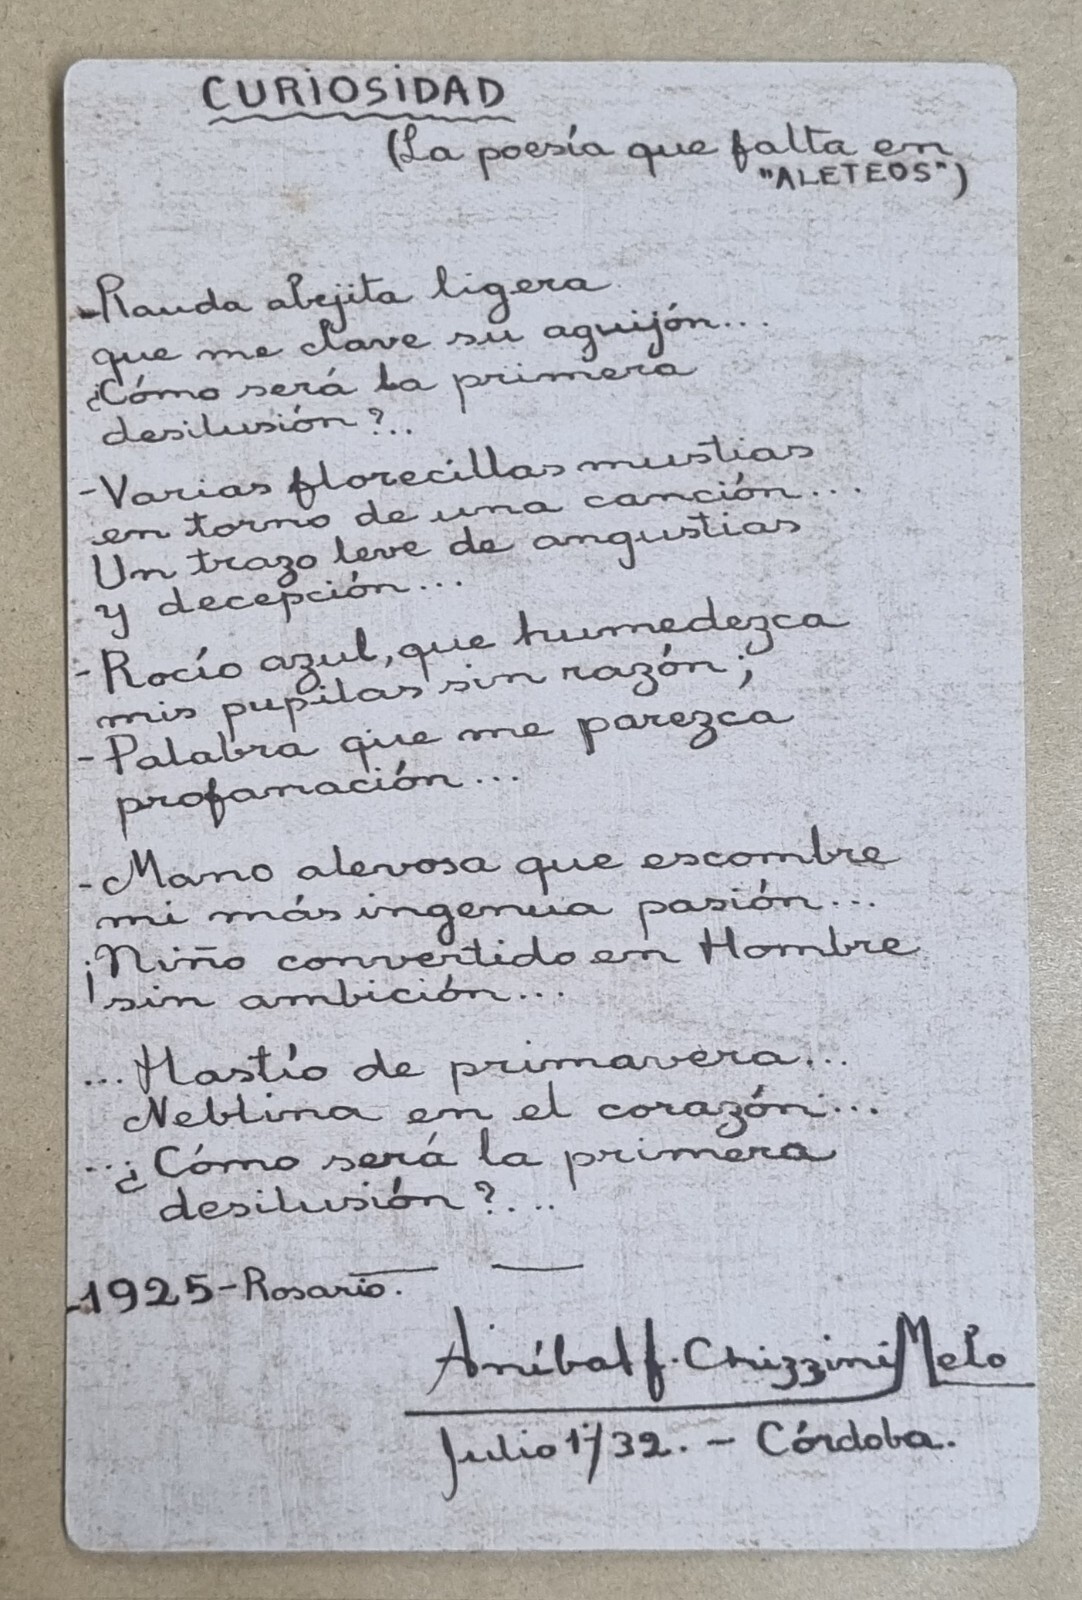 CURIOSIDAD
(La poesía que falta en
"ALETEOS")
-Rauda abejita ligera
que me clave su aguijón...
¿Cómo será la primera
desilusión?..
-Varias florecillas mustias
en torno de una canción...
Un trazo leve de angustias
y decepción...
-Rocío azul, que humedezca
mis pupilas sin razón;
-Palabra que me parezca
profanación...
-Mano alevosa que escombre
mi más ingenua pasión...
¡Niño convertido en Hombre
sin ambición...
...Hastío de primavera...
Neblina en el corazón...
...¿Cómo será la primera
desilusión?...
-1925-Rosario.
Aníbal f. Chizzini Melo
Julio 1º/32. - Córdoba.